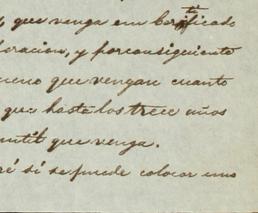 que venga em bertificado
loracion, y por consiguiente
ueno que vengan cuanto
que hasta los trece años
inutil que venga.
ré si se puede colocar uno